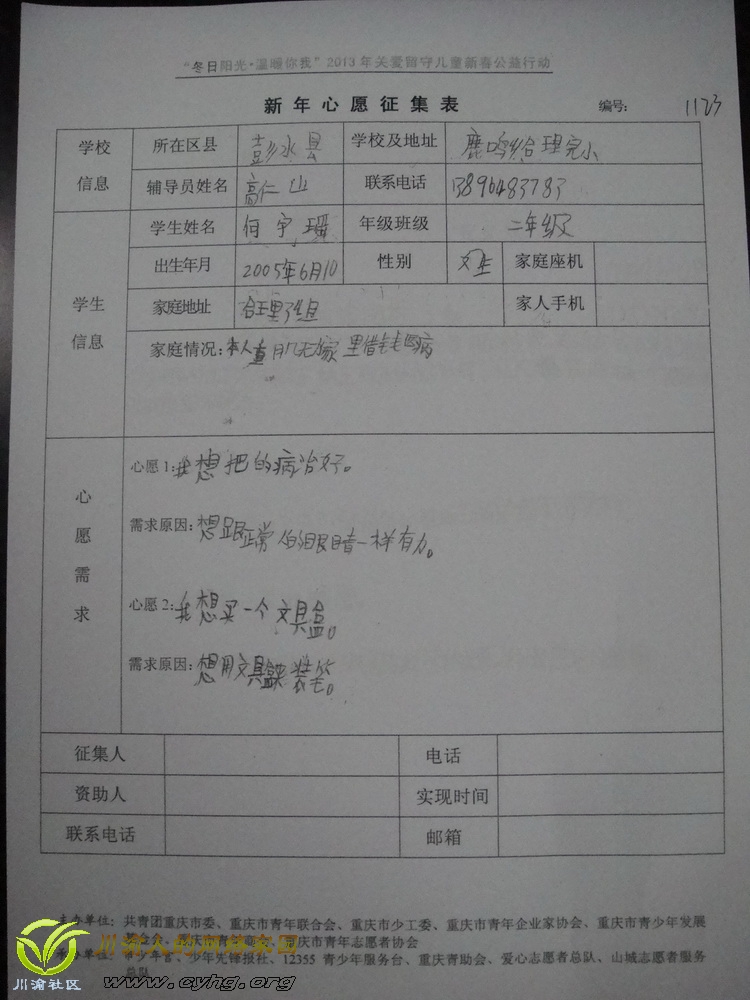 “冬日阳光·温暖你我”2013年关爱留守儿童新春公益行动
新年心愿征集表 编号: 1123
学校信息 所在区县 彭水县 学校及地址 鹿鸣乡合理完小
辅导员姓名 高仁山 联系电话 13896483783
学生信息 学生姓名 何宇瑶 年级班级 二年级
出生年月 2005年6月10 性别 女生 家庭座机
家庭地址 合理3组 家人手机
家庭情况: 本人重肌无 家里借 病
心愿需求
心愿1: 我想把的病治好。
需求原因: 想跟正常的眼睛一样有力。
心愿2: 我想买一个文具盒。
需求原因: 想用文具盒来装笔。
征集人 电话
资助人 实现时间
联系电话 邮箱
主办单位: 共青团重庆市委、重庆市青年联合会、重庆市少工委、重庆市青年企业家协会、重庆市青少年发展
基金会、重庆市青 重庆市青年志愿者协会
承办单位: 青少年 少年先锋报社、12355青少年服务台、重庆青助会、爱心志愿者总队、山城志愿者服务
总队
川渝社区
川渝人的网络家园
www.cyhg.org